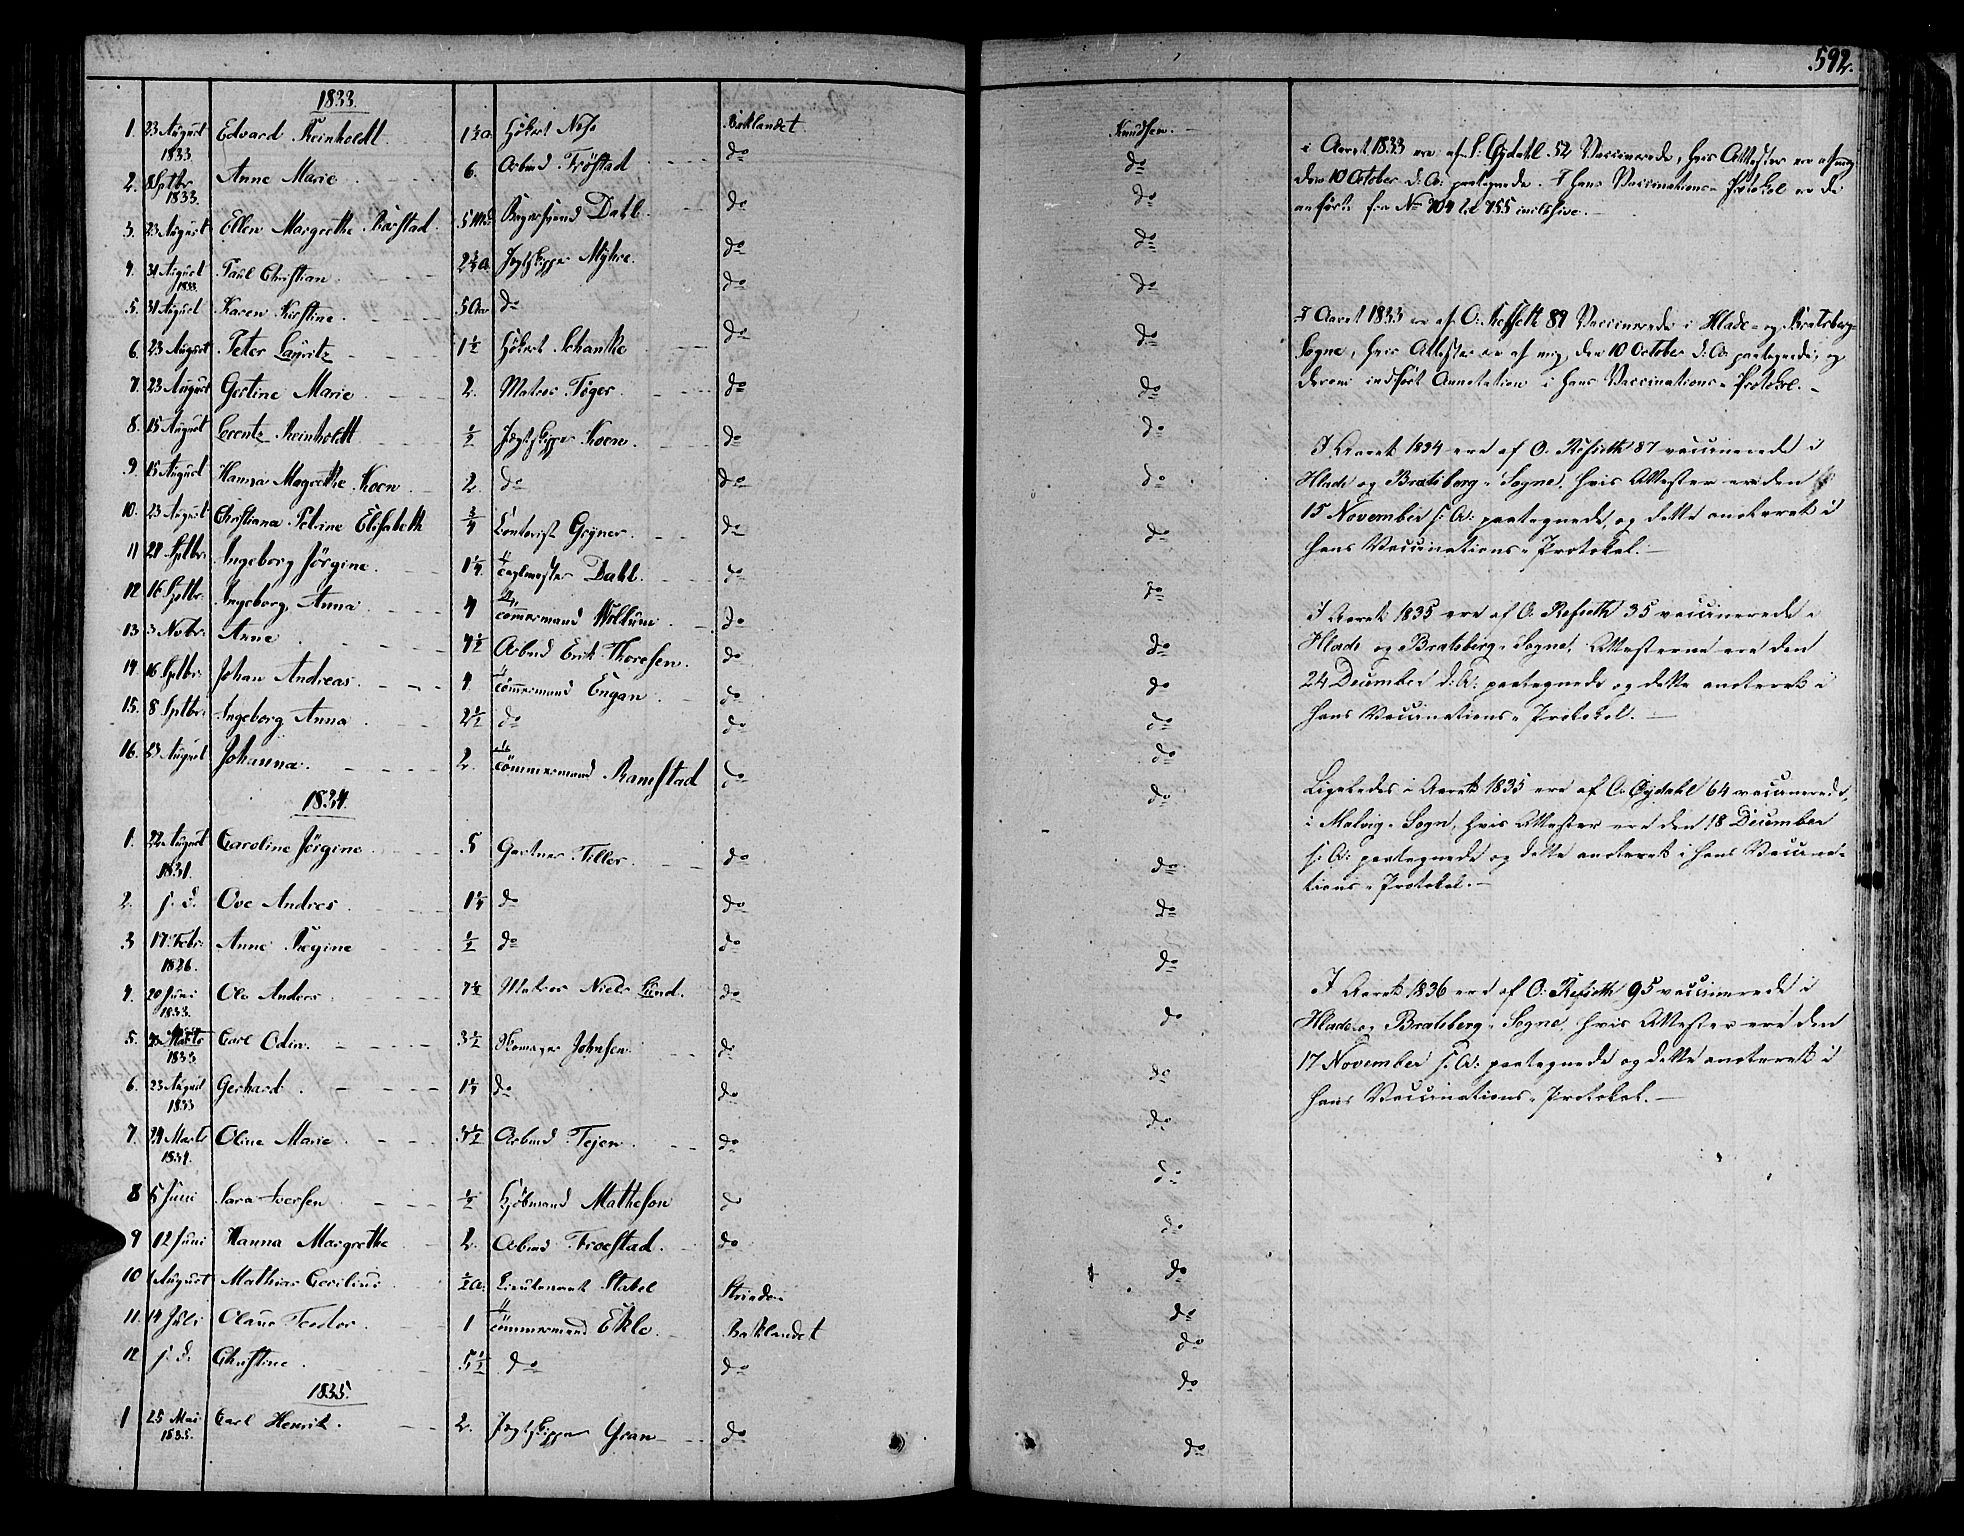 592.
1833.
1. 23 August 1833. Edvard Reinholdt. 1¼ a. Baklandet. Knudsen.
2. 8 Sptbr. 1833. Anne Marie 6. Arbmd Fröstad do do
3. 23 August Ellen Margrethe 5 Md. Dahl. do do
4. 31 August 1833. Paul Christian 2¼ a Jagtskipper Myhre. do do
5. 31 August Karen Kirstine. 5 Aar do do do
6. 23 August Peter Lauritz 1½ Hökert Schanke do do
7. 23 August Gertine Marie 2. Matros Föger. do do
8. 15 August Lorentz Reinholdt ½ Jagtskipper Koen. do do
9. 15 August Hanna Magrethe Koen 2. do do do
10. 23 August Christiana Petrine Elisabeth ¾ Contorist Grÿner. do do
11 21 Sptbr. Ingeborg Jörgine. 1¼. Dahl. do do
12 16 Sptbr. Ingeborg Anna 4 Tömmermand do do
13 3 Novbr. Anne 4½ Arbmd Erik Thoresen. do do
14 16 Sptbr. Johan Andreas. 4 Tömmermand Engan. do do
15. 8 Sptbr. Ingeborg Anna 2½ do do do
16. 23 August Johanna. 2. Tömmermand Ramstad do do
1834.
1. 22 August 1831. Caroline Jörgine 5 Gartner Tiller. do do
2. s. D. Ove Andres 1¼ do do do
3 17 Febr. 1826. Anne Regine ½ do do do
4. 20 Juni 1833. Ole Anders 7¼ Matros Niels Lund. do do
5. 1833 Carl Odin. 3½ Skomager Johnsen. do do
6. 23 August 1833 Gerhard. 1¼ do do do
7. 24 Marts 1834. Oline Marie 3½ Arbmd Tejen. do do
8 5 Juni Sara Iversen ½ Kjöbmand Matheson do do
9 12 Juni Hanna Margrethe 2. Arbmd Froestad. do do
10 August Mathias Cecilius ½ a. Lieutenant Stabel Strinden do
11. 14 Juli Olaus Teodor 1 Tömmermand Ekle. Baklandet do
12 s. D. Christine. 5½ do do do
1835.
1 25 Mai 1835. Carl Henrik. 2. Jagtskipper Gran do do
i Aaret 1833 ere af S: Gydahl 52 Vaccinerede, hvis Attester ere af mig
den 10 October d: A: paategnede. I hans Vaccinations-Protokol er de
anført fra No 704 til 755 inclusive.
I Aaret 1833 ere af O: Refseth 89 Vaccinerede i Hlade- og Bratsberg-
Sogne, hvis Attester er af mig, den 10 October d: A: paategnede, og
derom indført Annotation i hans Vaccinations-Protokol.
I Aaret 1834 ere af O. Refseth 87 vaccinerede i
Hlade og Bratsberg-Sogne, hvis Attester ere den
15 November s: A: paategnede, og dette anoteret i
hans Vaccinations-Protokol.
I Aaret 1835 ere af O. Refseth 35 vaccinerede i
Hlade og Bratsberg-Sogne, Attesterne ere den
24 December d: A: paategnede og dette anoteret i
hans Vaccinations-Protokol.
Ligeledes i Aaret 1835 ere af O. Gydahl 64 vaccinerede,
i Malvig-Sogn, hvis Attester ere den 18 December
s: A: paategnede og dette anoteret i hans Vaccina-
tions-Protokol.
I Aaret 1836 ere af O: Refseth 95 vaccinerede i
Hlade og Bratsberg-Sogne, hvis Attester ere den
17 November s: A: paategnede og dette anoteret i
hans Vaccinations-Protokol.